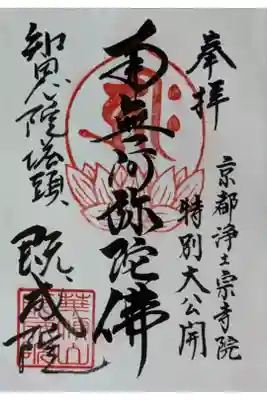 奉拝
京都浄土宗寺院
特別大公開
南無阿弥陀佛
知恩院塔頭
既成院